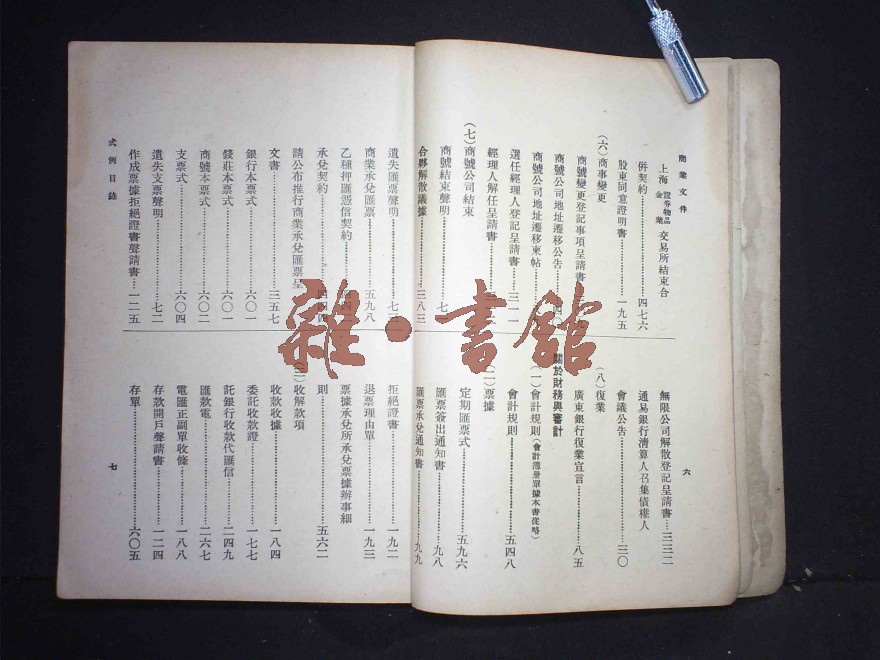 商業文件
上海證券物品金業交易所結束合
併契約……四七六
股東同意證明書……一九五
(六)商事變更
商號變更登記事項呈請書
商號公司地址遷移公告
商號公司地址遷移柬帖
選任經理人登記呈請書……三一一
經理人解任呈請書
(七)商號公司結束
商號結束聲明
合夥解散議據……三八三
無限公司解散登記呈請書……三三二
通易銀行清算人召集債權人
會議公告……三〇
(八)復業
廣東銀行復業宣言……八五
關於財務與審計
(一)會計規則(會計簿册單據本書從略)
會計規則……五四八
(二)票據
定期匯票式……五九六
匯票簽出通知書……九八
匯票承兌通知書……九九
六
遺失匯票聲明……七三
商業承兌匯票……五九八
乙種押匯憑信契約
承兌契約
請公布推行商業承兌匯票呈
文書……三五七
銀行本票式……六〇一
錢莊本票式……六〇一
商號本票式……六〇二
支票式……六〇四
遺失支票聲明……七二
作成票據拒絕證書聲請書……一二五
式例目錄
拒絕證書……一九二
退票理由單……一九三
票據承兌所承兌票據辦事細
則……五六二
(三)收解款項
收款收據……一八四
委託收款證……一七七
託銀行收款代匯信……二四九
匯款電……二六七
電匯正副單收條……一八八
存款開戶聲請書……一二四
存單……六〇五
七
雜·書館